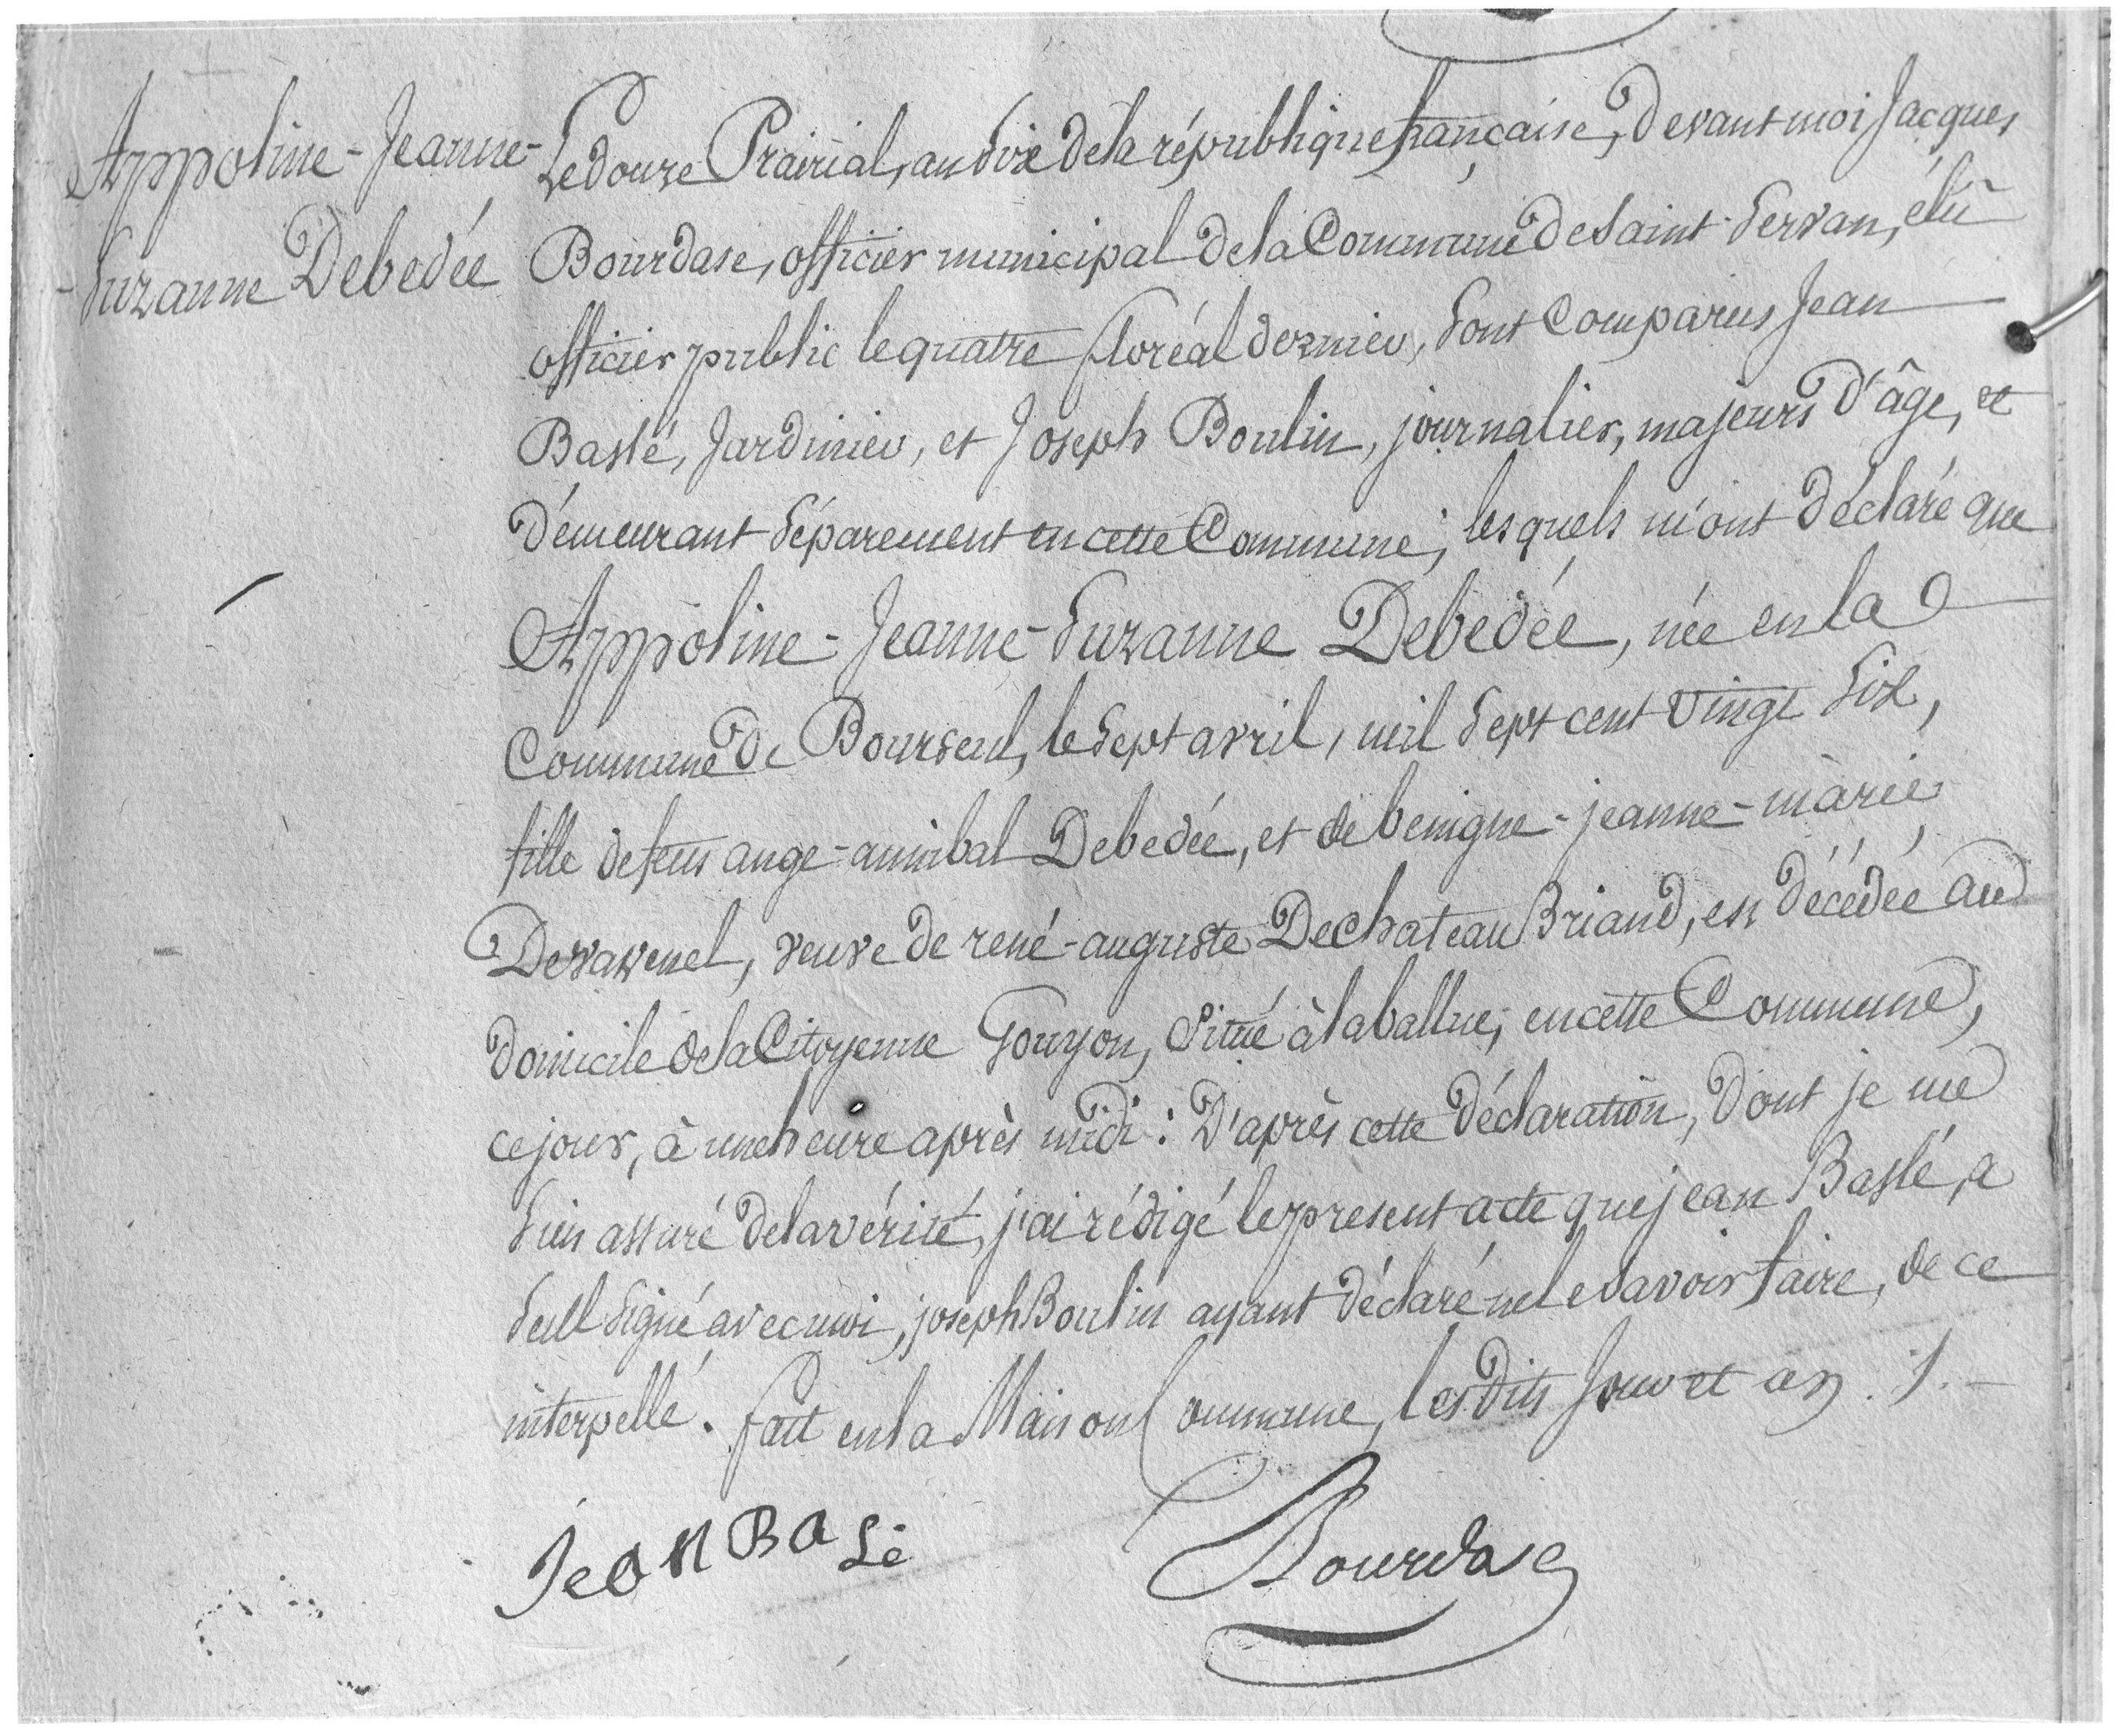 Appoline-Jeanne-
-Suzanne Debedée
Le douze Prairial, an Six de la république française, Devant moi Jacques
Bourdase, officier municipal de la Commune de Saint-Servan, élû
officier public le quatre floréal dernier, Sont Comparus Jean
Baslé, Jardinier, et Joseph Boulin, journalier, majeurs D'âge, et
Demeurant Séparement en cette Commune; lesquels m'ont Déclaré que
Appoline-Jeanne-Suzanne Debedée, née en la
Commune De Bourseul, le Sept avril, mil Sept cent vingt Six,
fille de feus ange-annibal Debedée, et de benigne-jeanne-marie
Deravenel, veuve de rené-auguste DechateauBriand, est Décédée au
Domicile de la Citoyenne Gouyon, Situé à la ballue, en cette Commune,
ce jour, à une heure après midi: D'après cette Déclaration, Dont je me
Suis assuré de la vérité, j'ai rédigé le present acte que jean Baslé, a
Seul Signé avec moi, joseph Boulin ayant Déclaré ne le Savoir faire, de ce
interpellé. fait en la Maison Commune, les Dits Jour et an ./. —
Jean BaLé
Bourdase